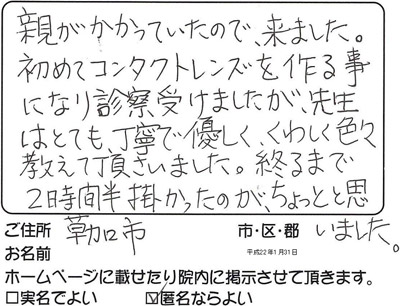 親がかかっていたので、来ました。
初めてコンタクトレンズを作る事
になり診察受けましたが、先生
はとても、丁寧で優しく、くわしく色々
教えて頂きいました。終るまで
2時間半掛かったのが、ちょっとと思
いました。
ご住所 草加市 市・区・郡
お名前 平成22年1月31日
ホームページに載せたり院内に掲示させて頂きます。
□実名でよい ☑匿名ならよい